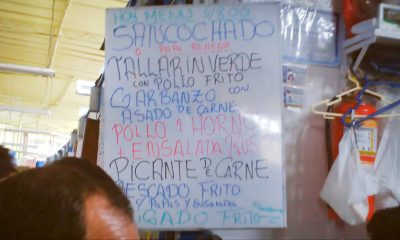 HOY MENU S/4.00
SANCOCHADO
O PAPA RELLENA
TALLARIN VERDE
CON POLLO FRITO
GARBANZO CON
ASADO DE CARNE
POLLO HORNO
+ ENSALADA RUS
PICANTE DE CARNE
PESCADO FRITO
PAPAS Y ENSALADA
IGADO FRITO